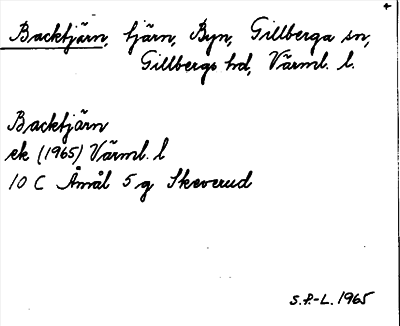 Backtjärn, tjärn, Byn, Gillberga sn,
Gillbergs hd, Värml. l.
Backtjärn
ek (1965) Värml. l
10 C Åmål 5 g Skeverud
S.P.-L. 1965